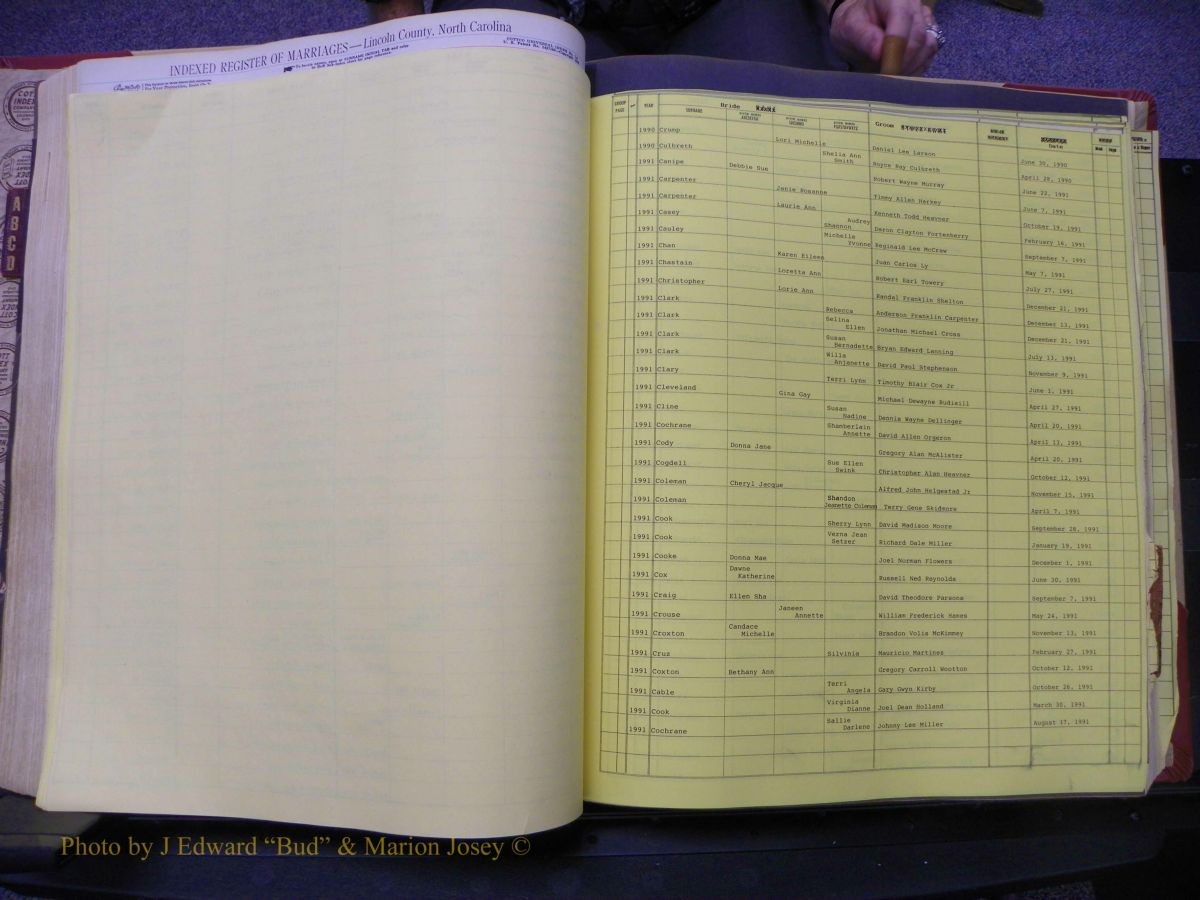 INDEXED REGISTER OF MARRIAGES—Lincoln County, North Carolina
A
B
C
D
GROUP PAGE YEAR SURNAME Bride Groom Date
1990 Crump Lori Michelle Daniel Lee Larson June 30, 1990
1990 Culbreth Shelia Ann Smith Royce Ray Culbreth April 28, 1990
1991 Canipe Debbie Sue Robert Wayne Murray June 22, 1991
1991 Carpenter Janie Roxanne Timmy Allen Herkey June 7, 1991
1991 Carpenter Laurie Ann Kenneth Todd Heavner October 19, 1991
1991 Casey Audrey Shannon Deron Clayton Fortenberry February 16, 1991
1991 Cauley Michelle Yvonne Reginald Lee McCraw September 7, 1991
1991 Chan Karen Eileen Juan Carlos Ly May 7, 1991
1991 Chastain Loretta Ann Robert Earl Towery July 27, 1991
1991 Christopher Lorie Ann Randel Franklin Shelton December 21, 1991
1991 Clark Rebecca Anderson Franklin Carpenter December 13, 1991
1991 Clark Selina Ellen Jonathan Michael Cross December 21, 1991
1991 Clark Susan Bernadette Bryan Edward Lanning July 13, 1991
1991 Clark Willa Anjanette David Paul Stephenson November 9, 1991
1991 Clary Terri Lynn Timothy Blair Cox Jr June 1, 1991
1991 Cleveland Gina Gay Michael Dewayne Rudisill April 27, 1991
1991 Cline Susan Nadine Dennis Wayne Dellinger April 20, 1991
1991 Cochrane Shamberlain Annette David Allen Orgeron April 13, 1991
1991 Cody Donna Jane Gregory Alan McAlister April 20, 1991
1991 Cogdell Sue Ellen Swink Christopher Alan Heavner October 12, 1991
1991 Coleman Cheryl Jacque Alfred John Helgestad Jr November 15, 1991
1991 Coleman Shandon Jeanette Coleman Terry Gene Skidmore April 7, 1991
1991 Cook Sherry Lynn David Madison Moore September 28, 1991
1991 Cook Verna Jean Setzer Richard Dale Miller January 19, 1991
1991 Cooke Donna Mae Joel Norman Flowers December 1, 1991
1991 Cox Dawne Katherine Russell Ned Reynolds June 30, 1991
1991 Craig Ellen Sha David Theodore Parsons September 7, 1991
1991 Crouse Janeen Annette William Frederick Hames May 24, 1991
1991 Croxton Candace Michelle Brandon Volis McKimmey November 13, 1991
1991 Cruz Silvinia Mauricio Martinez February 27, 1991
1991 Coxton Bethany Ann Gregory Carroll Wootton October 12, 1991
1991 Cable Terri Angela Gary Gwyn Kirby October 26, 1991
1991 Cook Virginia Dianne Joel Dean Holland March 30, 1991
1991 Cochrane Sallie Darlene Johnny Lee Miller August 17, 1991
Photo by J Edward “Bud” & Marion Josey ©